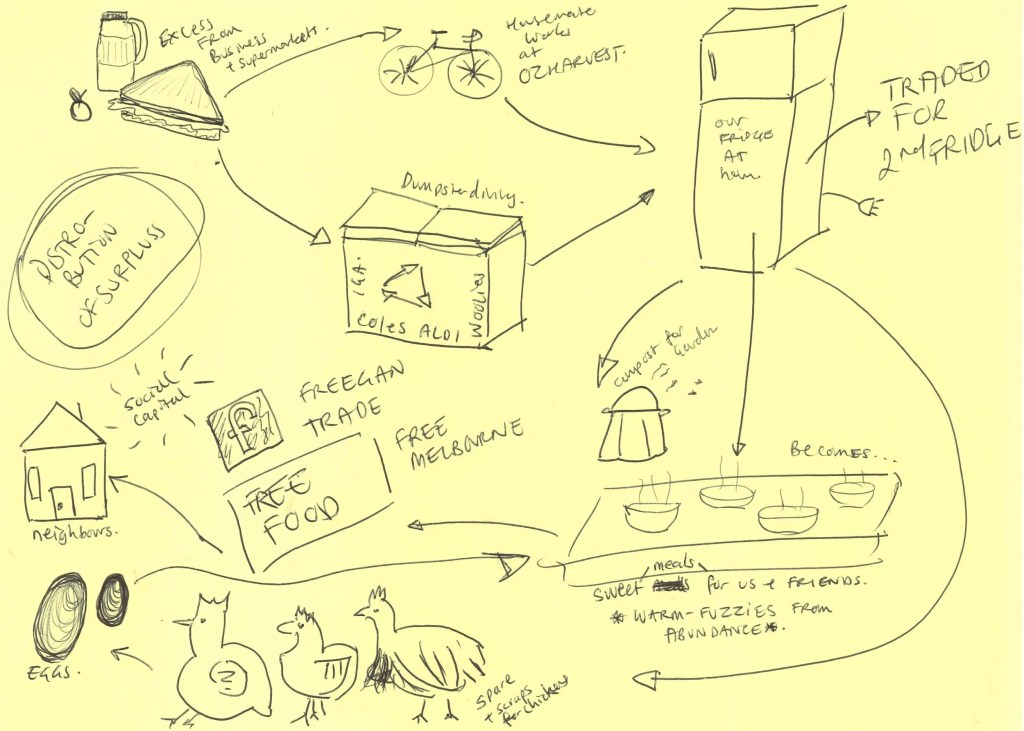 EXCESS
FROM
BUSINESS
+ SUPERMARKETS.
Housemate
Works
at
OZHARVEST.
OUR
FRIDGE
AT
hom
TRADED
FOR
2nd FRIDGE
DISTRO-
BUTION
OF SURPLUSS
Dumpster diving.
IGA.
Coles ALDI
WOOLIES
compost for
Garden
Social
Capital
FREEGAN
TRADE
f
FREE
MELBOURNE
FREE
FOOD
neighbours.
BECOMES...
meals
SWEET for us + FRIENDS.
* WARM-FUZZIES FROM
ABUNDANCE*.
EGGS.
Spare
+ scraps
for chickens